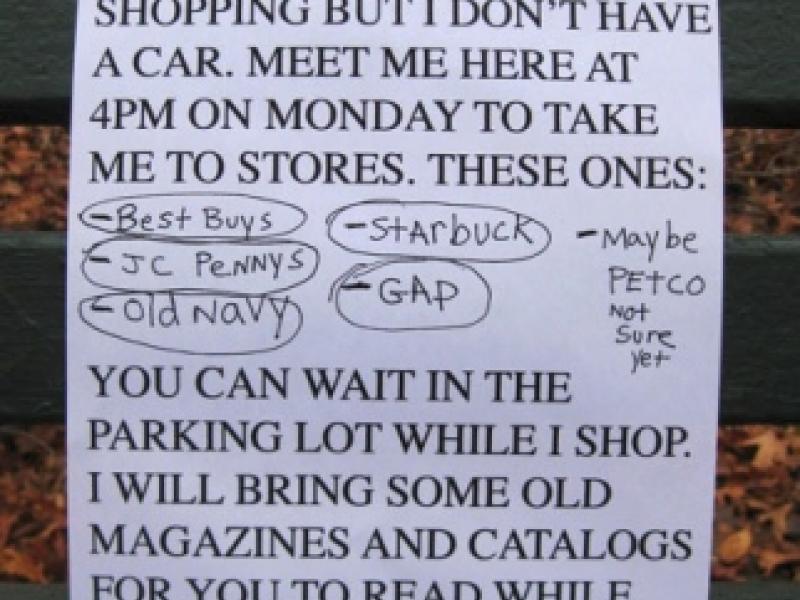 SHOPPING BUT I DON'T HAVE
A CAR. MEET ME HERE AT
4PM ON MONDAY TO TAKE
ME TO STORES. THESE ONES:
-Best Buys
-JC PeNNYS
-Old Navy
-StArbucK
-GAP
-Maybe
PEtCO
Not
Sure
yet
YOU CAN WAIT IN THE
PARKING LOT WHILE I SHOP.
I WILL BRING SOME OLD
MAGAZINES AND CATALOGS
FOR YOU TO READ WHILE